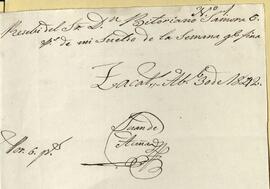 N.º 1.
Recibi del Sr. Dn. Bitoriano Zamora 6.
ps. de mi Sueldo de la Semana qe. fina
Zacats. Abl. 30 de 1842.
Juan de
Son. 6. ps.